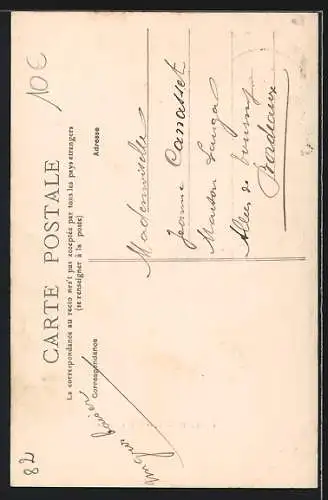 10€
CARTE POSTALE
La correspondance au recto n'est pas acceptée par tous les pays étrangers
(se renseigner à la poste)
Correspondance
Adresse
Un gros baiser
Mademoiselle
Jeanne Canasset
Maison
Allées de
Bordeaux
82